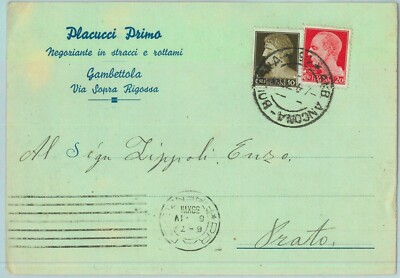 Placucci Primo
Negoziante in stracci e rottami
Gambettola
Via Sopra Rigossa
10
20
ANCONA-BO
Al Sign Zippoli Enzo.
Prato.